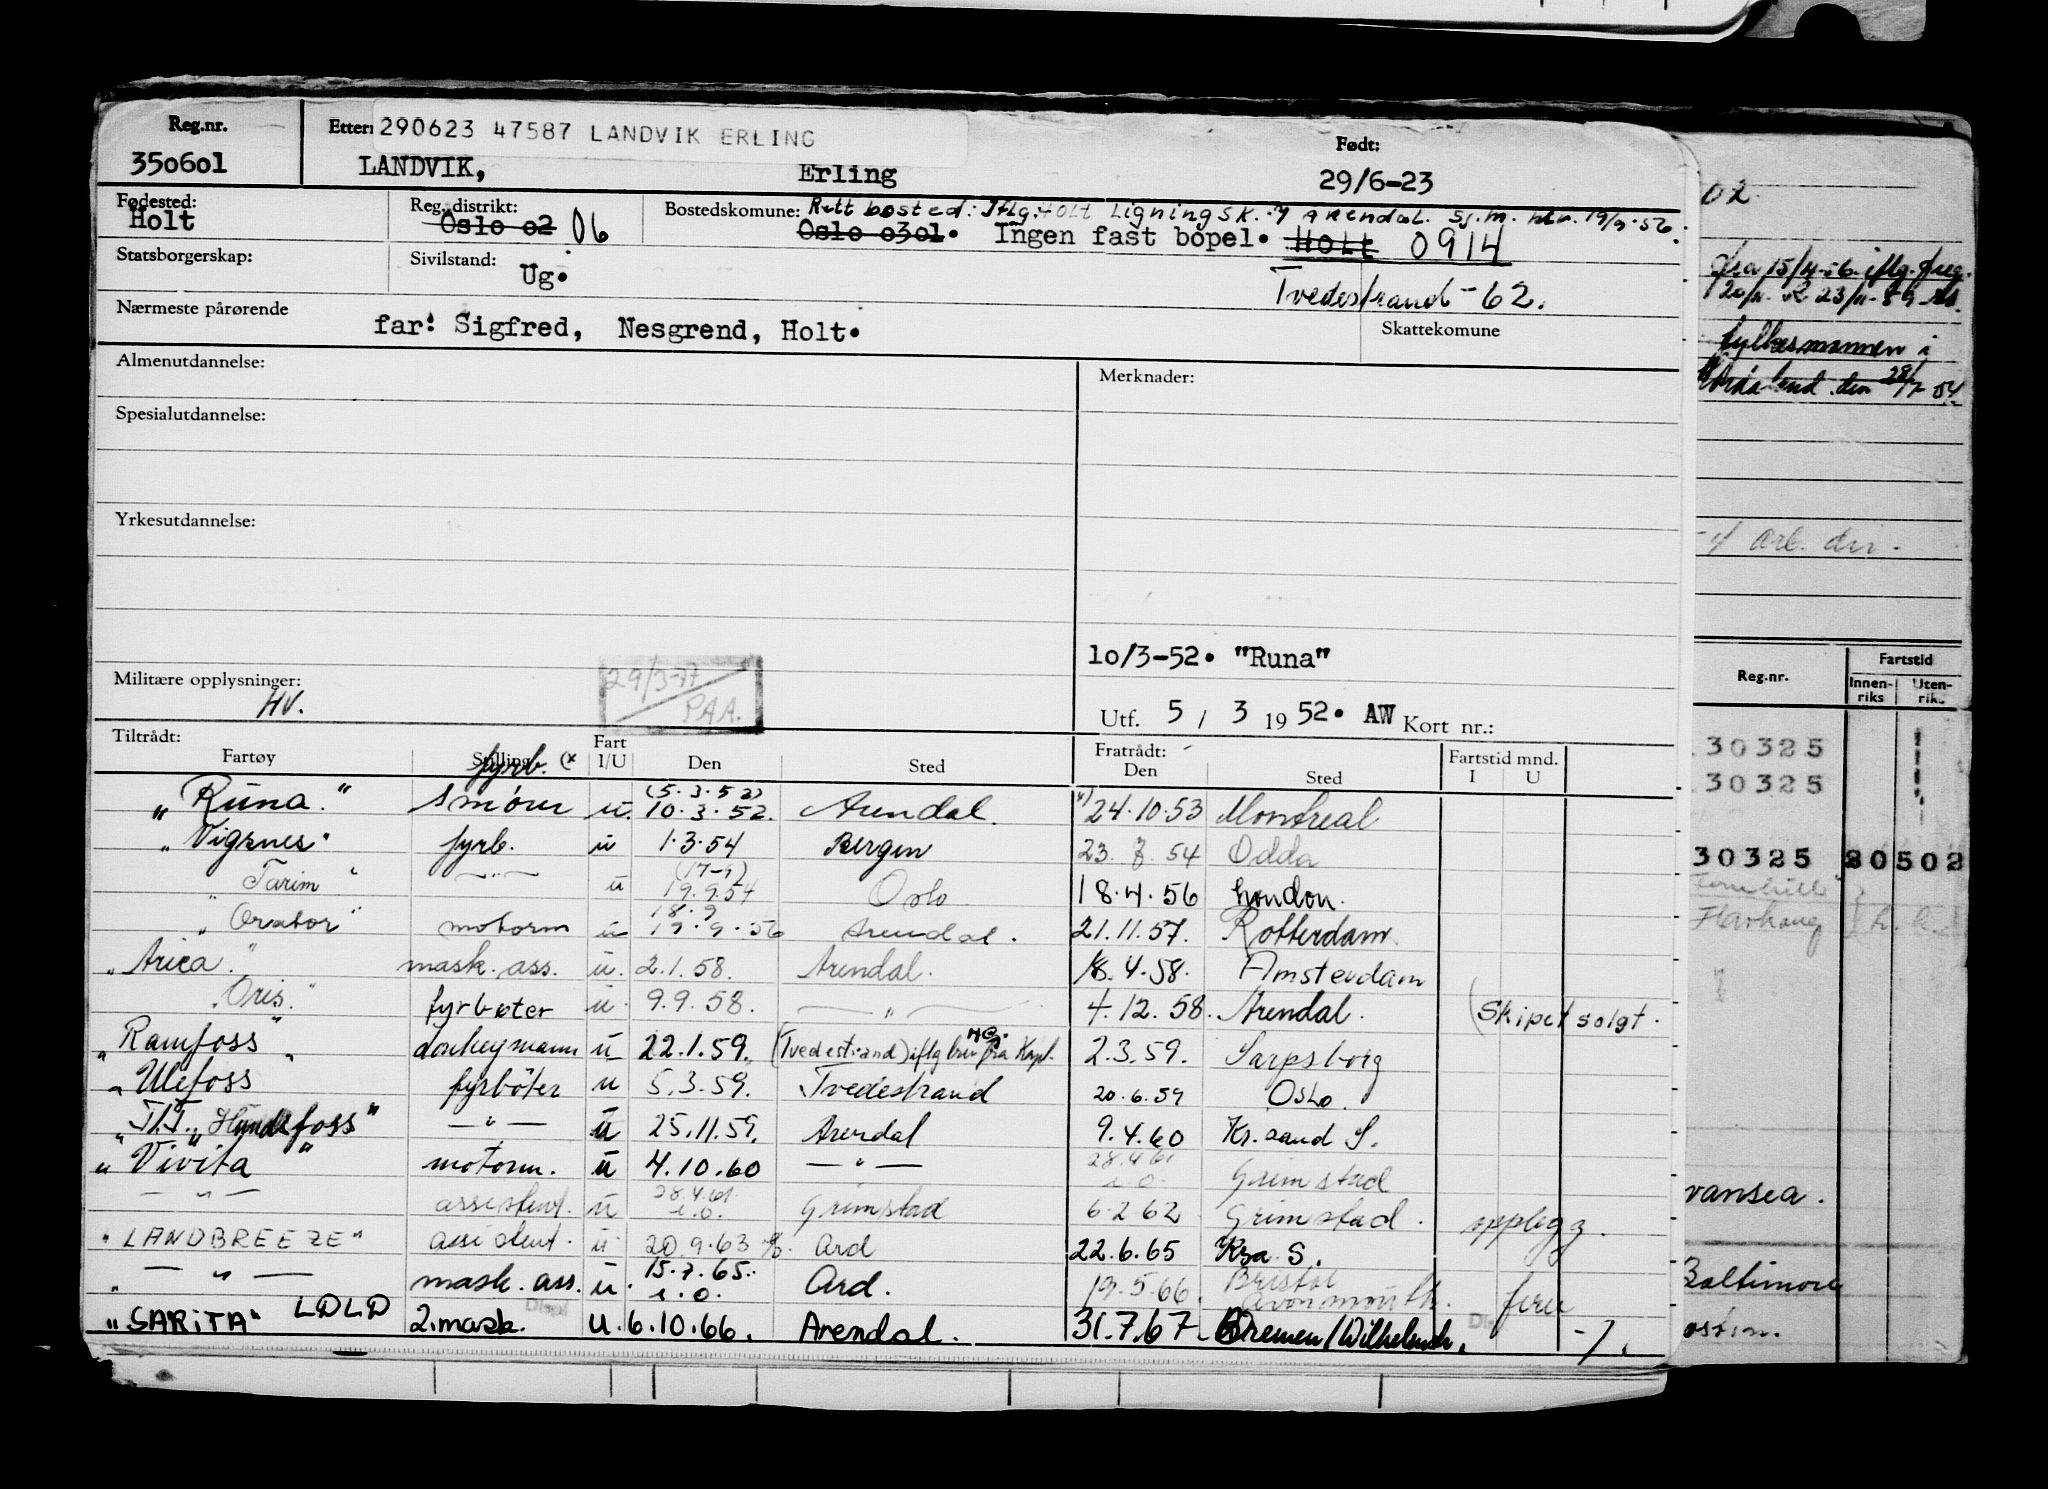 Reg.nr.
350601
Etter: 290623 47587 LANDVIK ERLING
LANDVIK, Erling
Født:
29/6-23
Fødested:
Holt
Reg. distrikt:
Oslo o2 06
Bostedskomune: Rett bosted: Iflg. Holt Ligningsk. Arendal. Sj.m. 19/9-56.
Oslo o3o1. Ingen fast bopel. Holt 0914
Tvedestrand - 62.
Statsborgerskap:
Sivilstand: Ug.
Nærmeste pårørende
far: Sigfred, Nesgrend, Holt.
Skattekomune
Almenutdannelse:
Merknader:
Spesialutdannelse:
Yrkesutdannelse:
10/3-52. "Runa"
Militære opplysninger:
HV.
29/3-77
PAA.
Utf. 5 / 3 19 52. AW Kort nr.:
Tiltrådt: Fratrådt:
Fartøy Stilling (x Fart I/U Den Sted Den Sted Fartstid mnd. I U
fyrb.
(5.3.52)
"Runa." smører u. 10.3.52. Arendal. 24.10.53 Montreal
"Vigsnes" fyrb. u 1.3.54 Bergen 23. 8. 54 Odda
(17-9)
"Tarim" —"— u 19.9.54 Oslo 18.4.56 London.
18.9
"Orator" motorm u 19.9.56 Arendal. 21.11.57. Rotterdam.
"Arica." mask. ass. u. 2.1.58. Arendal. 18.4.58. Amsterdam
"Oris." fyrbøter u. 9.9.58. —"— 4.12.58. Arendal. (Skipet solgt.
"Ramfoss" donkeymann u 22.1.59. (Tvedestrand) iflg brev fra Kapt. 2.3.59. Sarpsborg
"Ulefoss" fyrbøter u 5.3.59. Tvedestrand 20.6.59 Oslo.
"T/T. "Hundsfoss" —"— u 25.11.59. Arendal 9.4.60 Kr.sand S.
"Vivita" motorm. u 4.10.60 —"— 28.4.61 i.o. Grimstad
—"— assistent. u 28.4.61. i.o. Grimstad 6.2.62 Grimstad. opplegg.
"LANDBREEZE" assistent. u 20.9.63 Ard 22.6.65 Kra. S.
—"— mask. ass. u. 15.7.65. i.o. Ard. 19.5.66. Bristol Avonmouth. ferie
"SARITA" LDLD 2.mask. u. 6.10.66. Arendal. 31.7.67. Bremen/Wilhelmsh. -7.
02
fra 15/4-56. iflg.
fylkesmannen i
Hordaland den 28/7 54
arb. dir.
Reg.nr. Fartstid
Innen-riks Uten-riks
30325
30325
30325 20502
vansea.
Baltimore